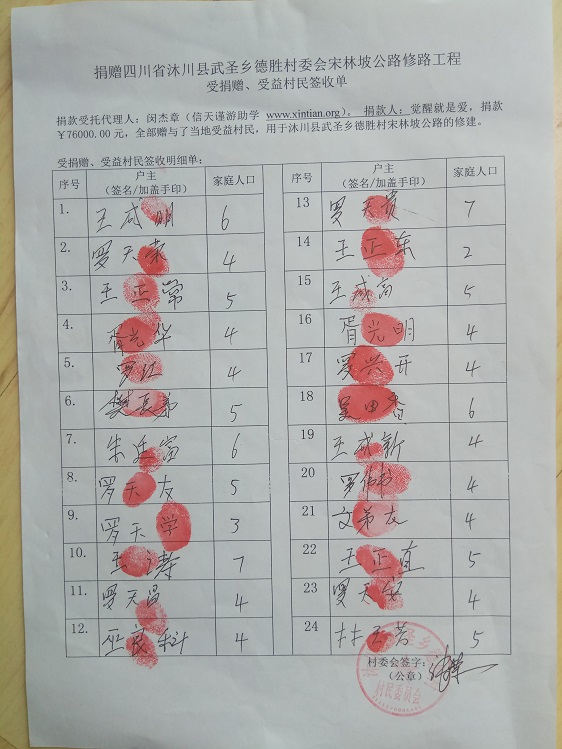 捐赠四川省沐川县武圣乡德胜村委会宋林坡公路修路工程
受捐赠、受益村民签收单
捐款受托代理人：闵杰章（信天谨游助学 www.xintian.org)。捐款人：觉醒就是爱，捐款
￥76000.00 元，全部赠与了当地受益村民，用于沐川县武圣乡德胜村宋林坡公路的修建。
受捐赠、受益村民签收明细单：
序号 户主（签名/加盖手印） 家庭人口
1. 王成明 6
2. 罗天荣 4
3. 王正常 5
4. 胥光华 4
5. 罗江 4
6. 樊 5
7. 朱 富 6
8. 罗天友 5
9. 罗天学 3
10. 王 7
11. 罗天昌 4
12. 巫良 4
序号 户主（签名/加盖手印） 家庭人口
13 罗天贵 7
14 王正东 2
15 王成高 5
16 胥光明 4
17 罗兴开 4
18 田香 6
19 王成新 4
20 罗 4
21 文 友 4
22 王正直 5
23 罗天 4
24 芳 5
村委会签字：
（公章）
村民委员会